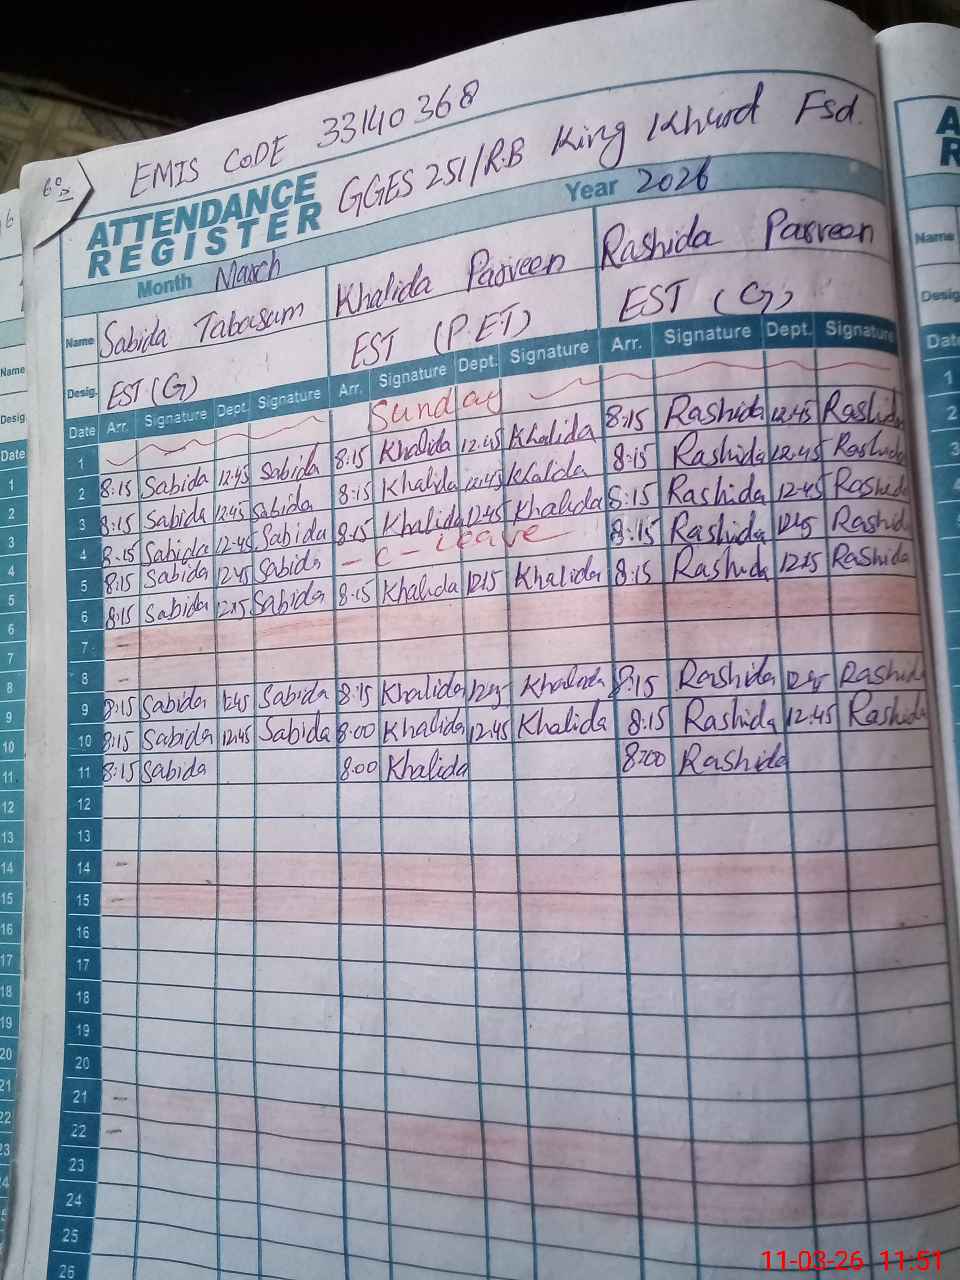 EMIS CODE 33140368
GGES 251/R.B King Khurd Fsd.
ATTENDANCE REGISTER
Month March Year 2026
Name Sabida Tabasum Khalida Parveen Rashida Parveen
Desig. EST (G) EST (P.ET) EST (G)
Date Arr. Signature Dept. Signature Arr. Signature Dept. Signature Arr. Signature Dept. Signature
1 Sunday
2 8:15 Sabida 12:45 Sabida 8:15 Khalida 12:45 Khalida 8:15 Rashida 12:45 Rashida
3 8:15 Sabida 12:45 Sabida 8:15 Khalida 12:45 Khalida 8:15 Rashida 12:45 Rashida
4 8:15 Sabida 12:45 Sabida 8:15 Khalida 12:45 Khalida 8:15 Rashida 12:45 Rashida
5 8:15 Sabida 12:45 Sabida - C - leave 8:15 Rashida Rashida
6 8:15 Sabida 12:15 Sabida 8:15 Khalida 12:15 Khalida 8:15 Rashida 12:15 Rashida
7 -
8 -
9 8:15 Sabida Sabida 8:15 Khalida Khalida 8:15 Rashida Rashida
10 8:15 Sabida 12:45 Sabida 8:00 Khalida 12:45 Khalida 8:15 Rashida 12:45 Rashida
11 8:15 Sabida 8:00 Khalida 8:00 Rashida
12
13
14 -
15
16
17
18
19
20
21 -
22 -
23
24
25
26
Name
Desig.
Date
1
2
3
11-03-26 11:51